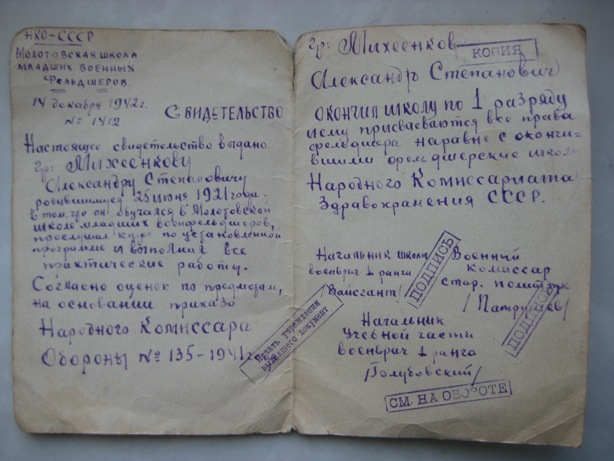 НКО-СССР
Молотовская школа
младших военных
фельдшеров
14 декабря 1942 г.
№ 1412
Свидетельство
Настоящее свидетельство выдано
гр: Михеенкову
Александру Степановичу
родившемуся 25 июня 1921 года
в том, что он обучался в Молотовской
школе младших военфельдшеров,
прослушал курс по установленной
программе и выполнил все
практические работу.
Согласно оценок по предметам,
на основании приказа
Народного Комиссара
Обороны № 135-1941 г.
Печать учреждения
документ
гр: Михеенков
КОПИЯ
Александр Степанович
окончил школу по 1 разряду
ему присваеваются все права
фельдшера наравне с окончи-
вшими фельдшерские школы
Народного Комиссариата
Здравохранения СССР.
Начальник школы
военврач 1 ранга
/Вайсгант/
ПОДПИСЬ
Военный
комиссар
стар. политрук
/Патрушев/
ПОДПИСЬ
Начальник
Учебной части
военврач 1 ранга
/Голубовский/
СМ. НА ОБОРОТЕ